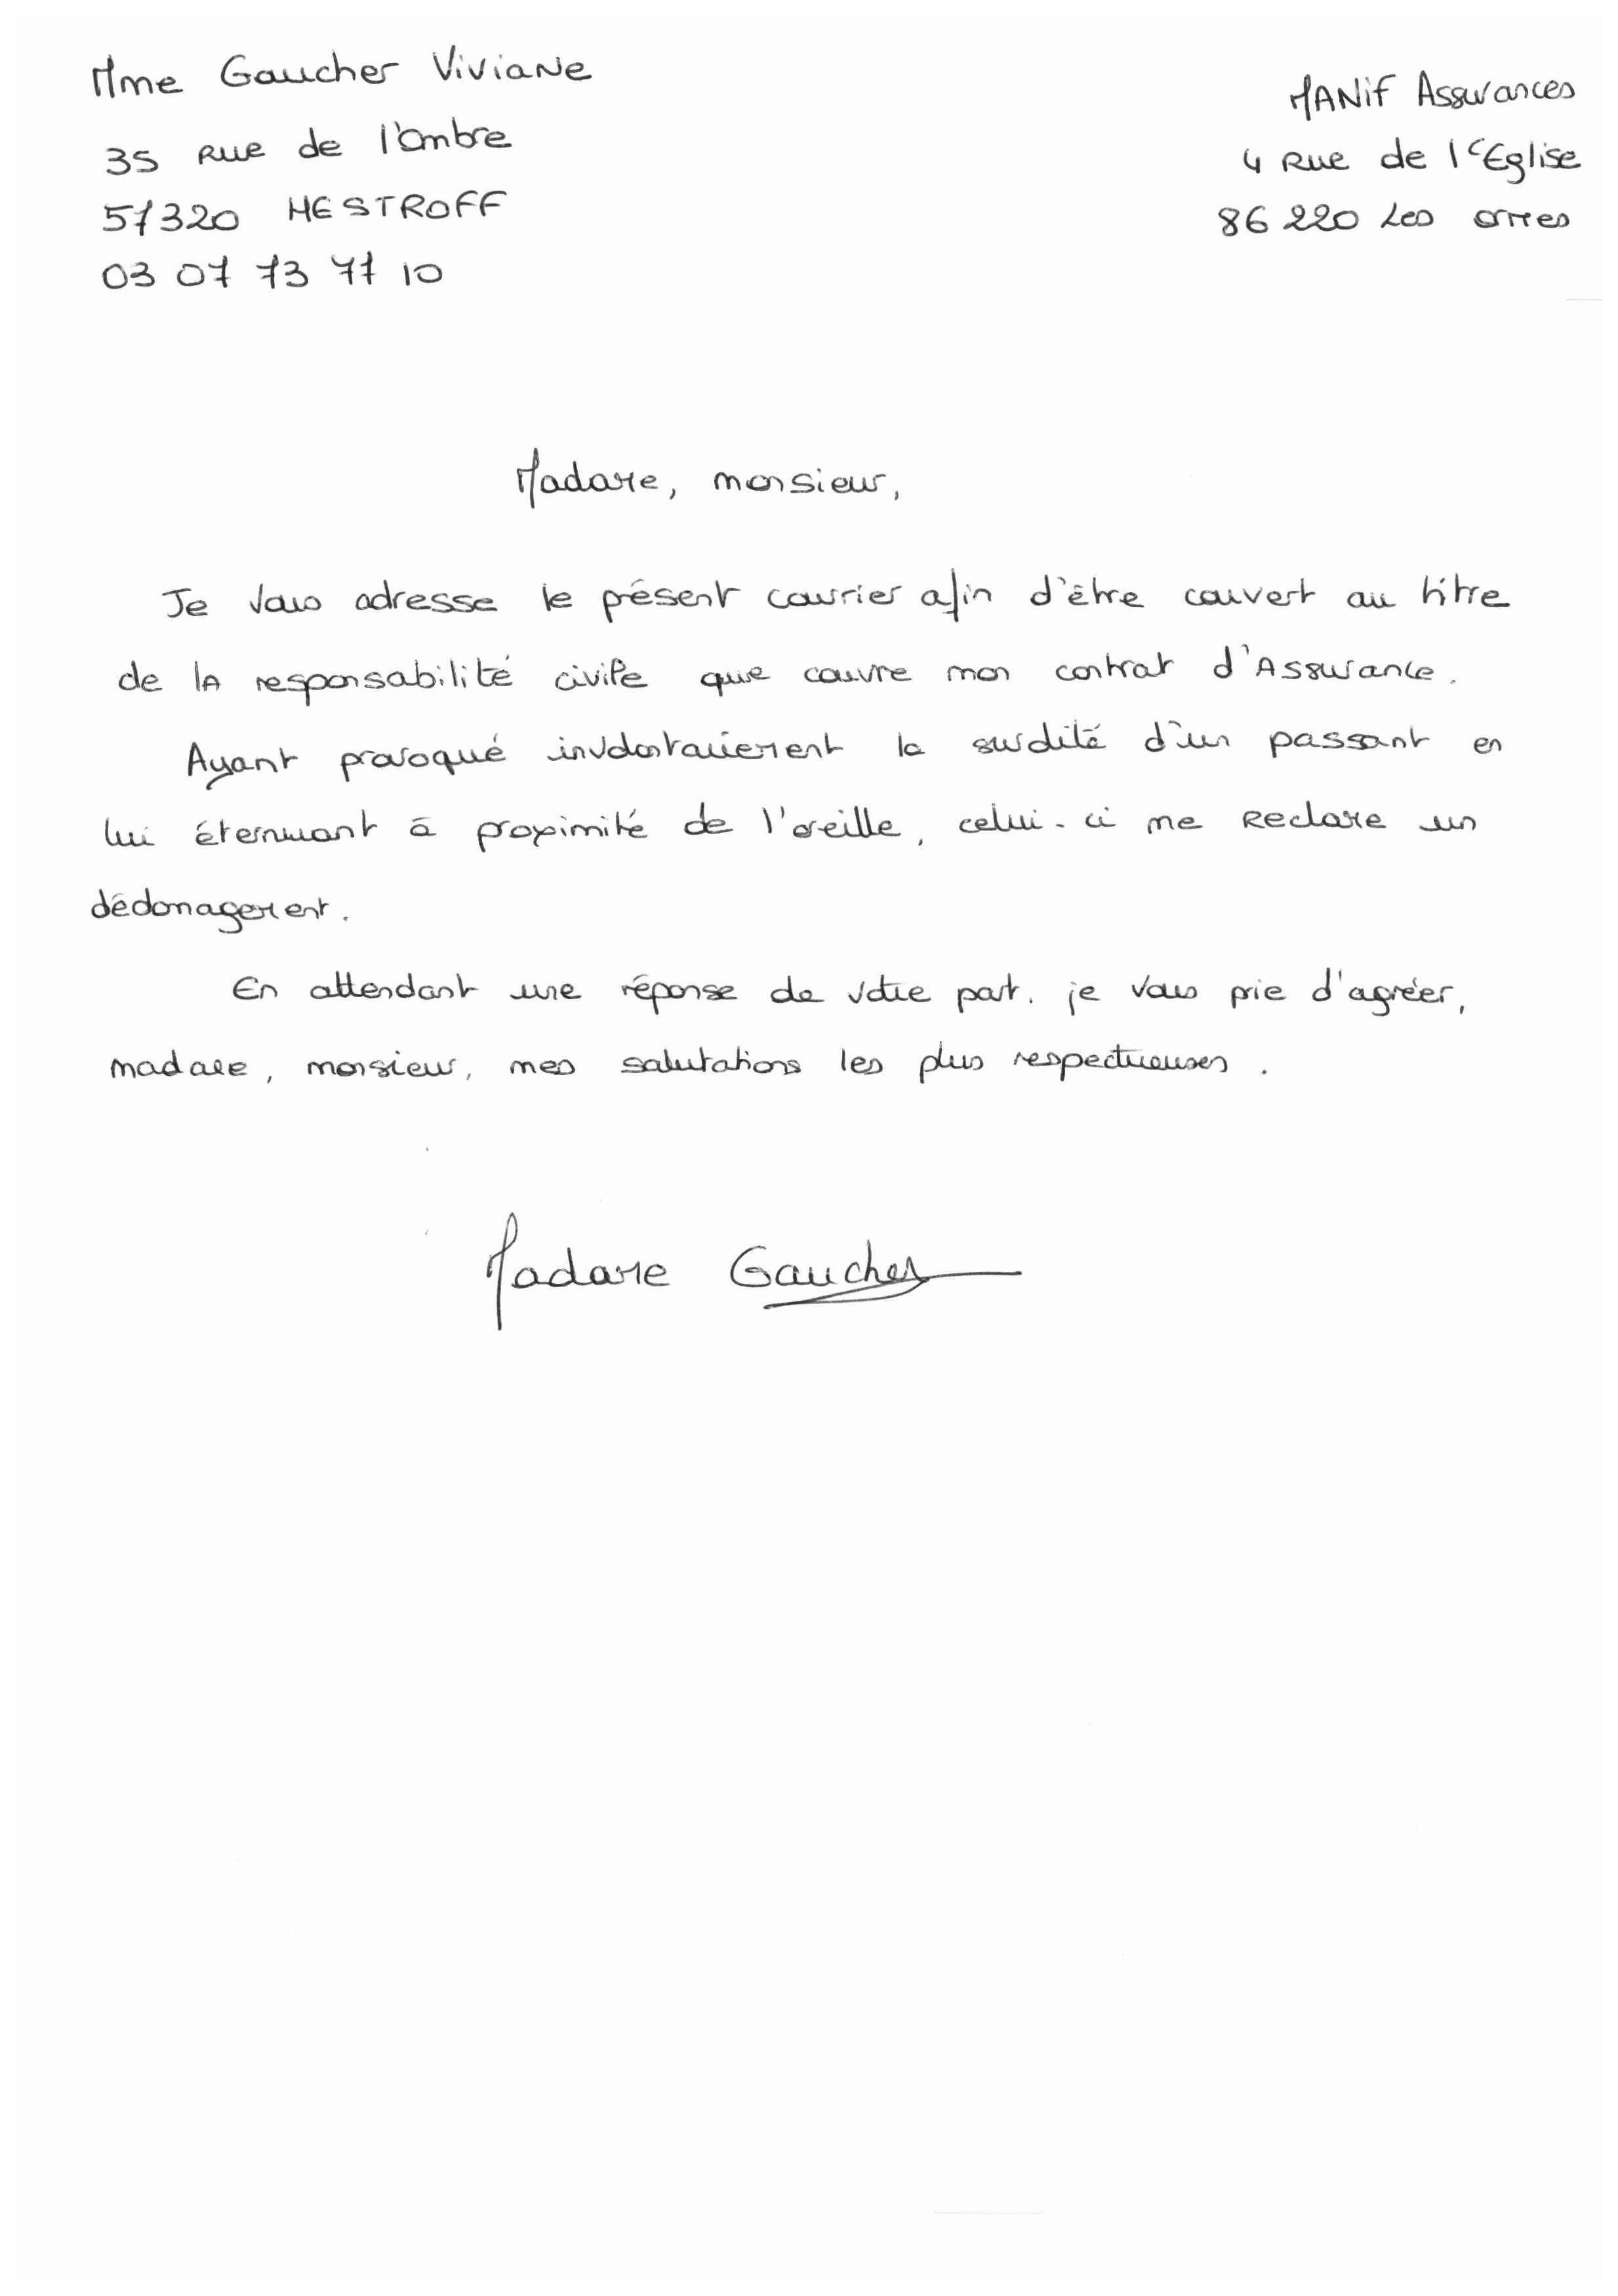 Mme Gaucher Viviane
35 rue de l'Ombre
57320 HESTROFF
03 07 73 77 10
MANif Assurances
4 Rue de l'Eglise
86 220 Les ormes
Madame, monsieur,
Je vous adresse le présent courrier afin d'être couvert au titre
de la responsabilité civile que couvre mon contrat d'Assurance.
Ayant provoqué involontairement la surdité d'un passant en
lui éternuant à proximité de l'oreille, celui-ci me reclame un
dédomagement.
En attendant une réponse de votre part. je vous prie d'agréer,
madame, monsieur, mes salutations les plus respectueuses.
Madame Gaucher